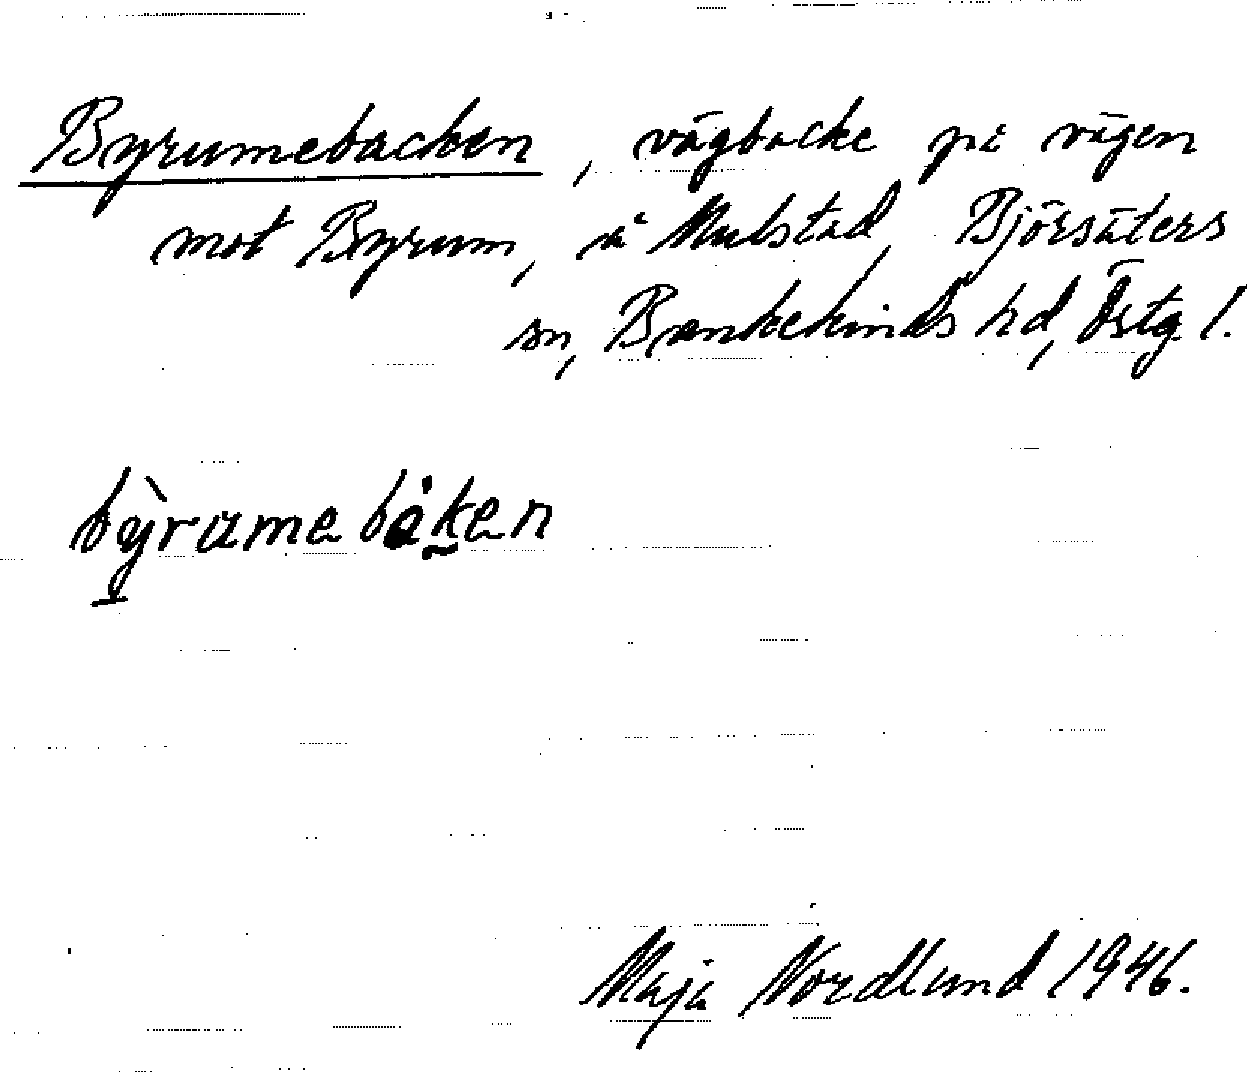 Byrumebacken, vägbacke på vägen
mot Byrum, å Mulstad, Björsäters
sn, Bankekinds hd, Östg l.
bỳramebáken
Maja Nordlund 1946.